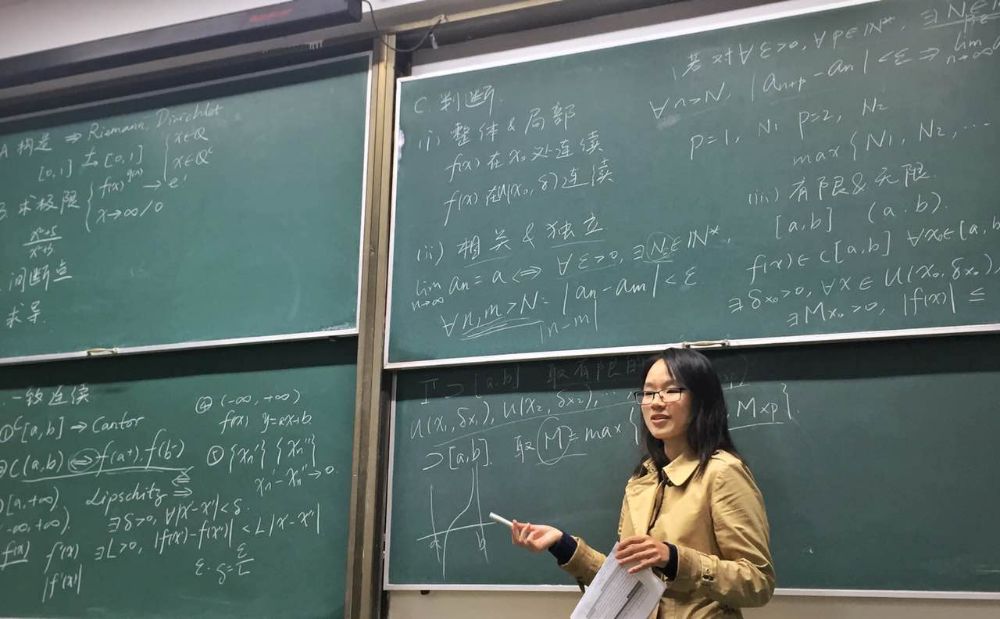 A 构造 ⇒ Riemann, Dirichlet
[0,1] 去 [0,1] { x∈Q
x∈Qᶜ
B 求极限 { f(x)^g(x) → e'
x→∞/0
间断点
求导
一致连续
① C[a,b] → Cantor
② C(a,b) ⇔ f(a⁺), f(b⁻)
[a,+∞) Lipschitz
(-∞,+∞) ∃δ>0, ∀|x'-x''|<δ
f(x) f'(x) ∃L>0, |f(x')-f(x'')|<L|x'-x''|
|f'(x)| ε·δ=ε/L
④ (-∞,+∞)
f(x) y=ax+b
⑤ {xn'} {xn''}
xn'-xn''→0.
C 判断.
(i) 整体 & 局部
f(x) 在 x₀ 处连续
f(x) 在 U(x₀,δ) 连续
(ii) 相关 & 独立
lim n→∞ an = a ⇔ ∀ε>0, ∃N∈ℕ*,
∀n,m>N: |an-am|<ε
|n-m|
若对∀ε>0, ∀p∈ℕ*, ∃N∈
∀n>N, |an+p-an|<ε ⇒ lim n→∞
p=1, N₁ p=2, N₂
max{N₁, N₂, ...
(iii) 有限 & 无限.
[a,b] (a,b).
f(x)∈C[a,b] ∀x₀∈[a,b
∃δx₀>0, ∀x∈U(x₀,δx₀),
∃Mx₀>0, |f(x)| ≤
⊃[a,b] 取有限
U(x₁,δx₁), U(x₂,δx₂), ...
⊃[a,b]. 取 M = max{ Mxp}.
a b